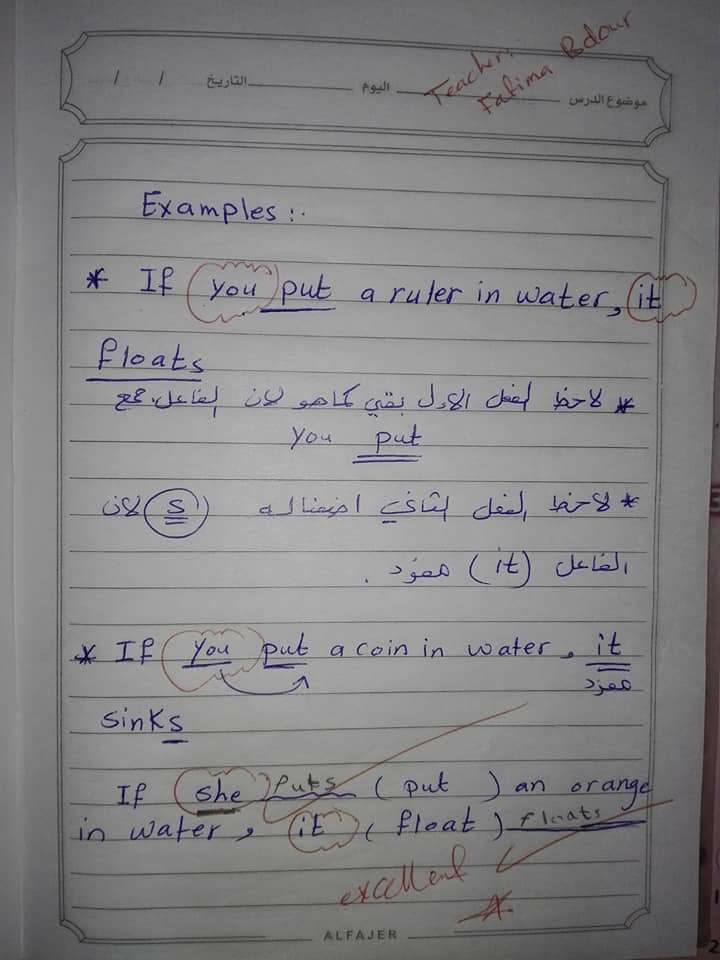 Teacher:
Fatima Bdour
موضوع الدرس اليوم التاريخ / /
Examples:.
* If you put a ruler in water, it
floats
* لاحظ الفعل الاول بقي كما هو لان الفاعل جمع
you put
* لاحظ الفعل الثاني اضفنا له (s) لان
الفاعل (it) مفرد.
* If you put a coin in water, it
مفرد
sinks
If she puts (put ) an orange
in water, it (float) floats
excellent
ALFAJER